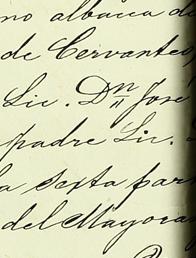 no albacea d
de Cervantes
Lic. Dn José
padre Lic.
la sexta par
del Mayora